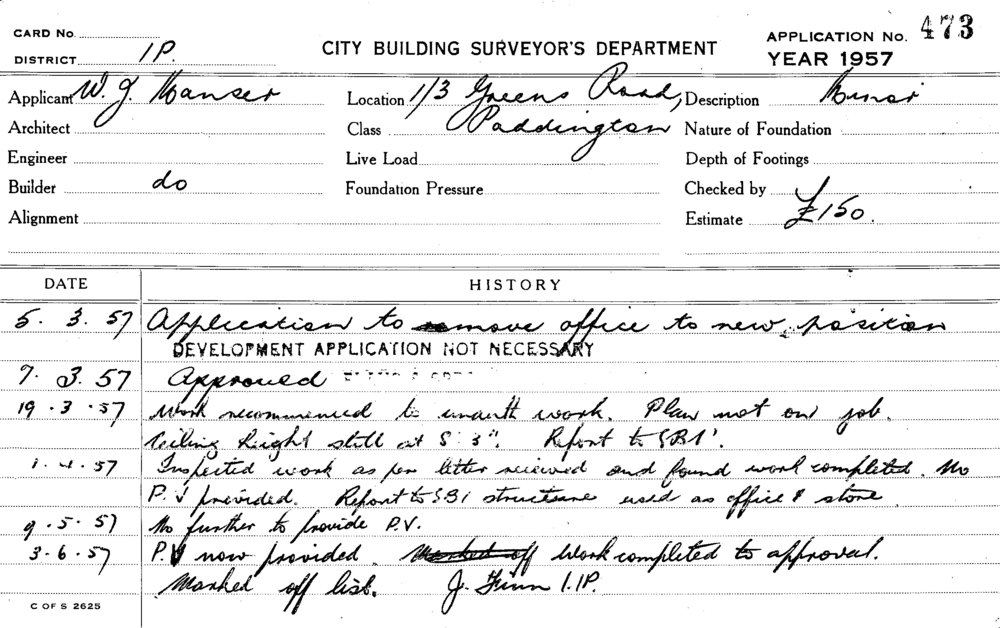 CARD No.
DISTRICT 1P.
CITY BUILDING SURVEYOR'S DEPARTMENT
APPLICATION No. 473
YEAR 1957
Applicant W. J. Manser
Location 1/3 Greens Road,
Description Minor
Architect
Class Paddington
Nature of Foundation
Engineer
Live Load
Depth of Footings
Builder do
Foundation Pressure
Checked by
Alignment
Estimate £150.
DATE HISTORY
5. 3. 57 Application to move office to new position
DEVELOPMENT APPLICATION NOT NECESSARY
7. 3. 57 Approved
19. 3. 57 Work recommenced to unauth work. Plan not on job.
Ceiling height still at 8' 3". Report to SB1'.
1. 4. 57 Inspected work as per letter received and found work completed. No
P.V provided. Report to SB1 structure used as office & store
9. 5. 57 No further to provide P.V.
3. 6. 57 P.V now provided. Work completed to approval.
Marked off list. J. Finn 1.1P.
C OF S 2625